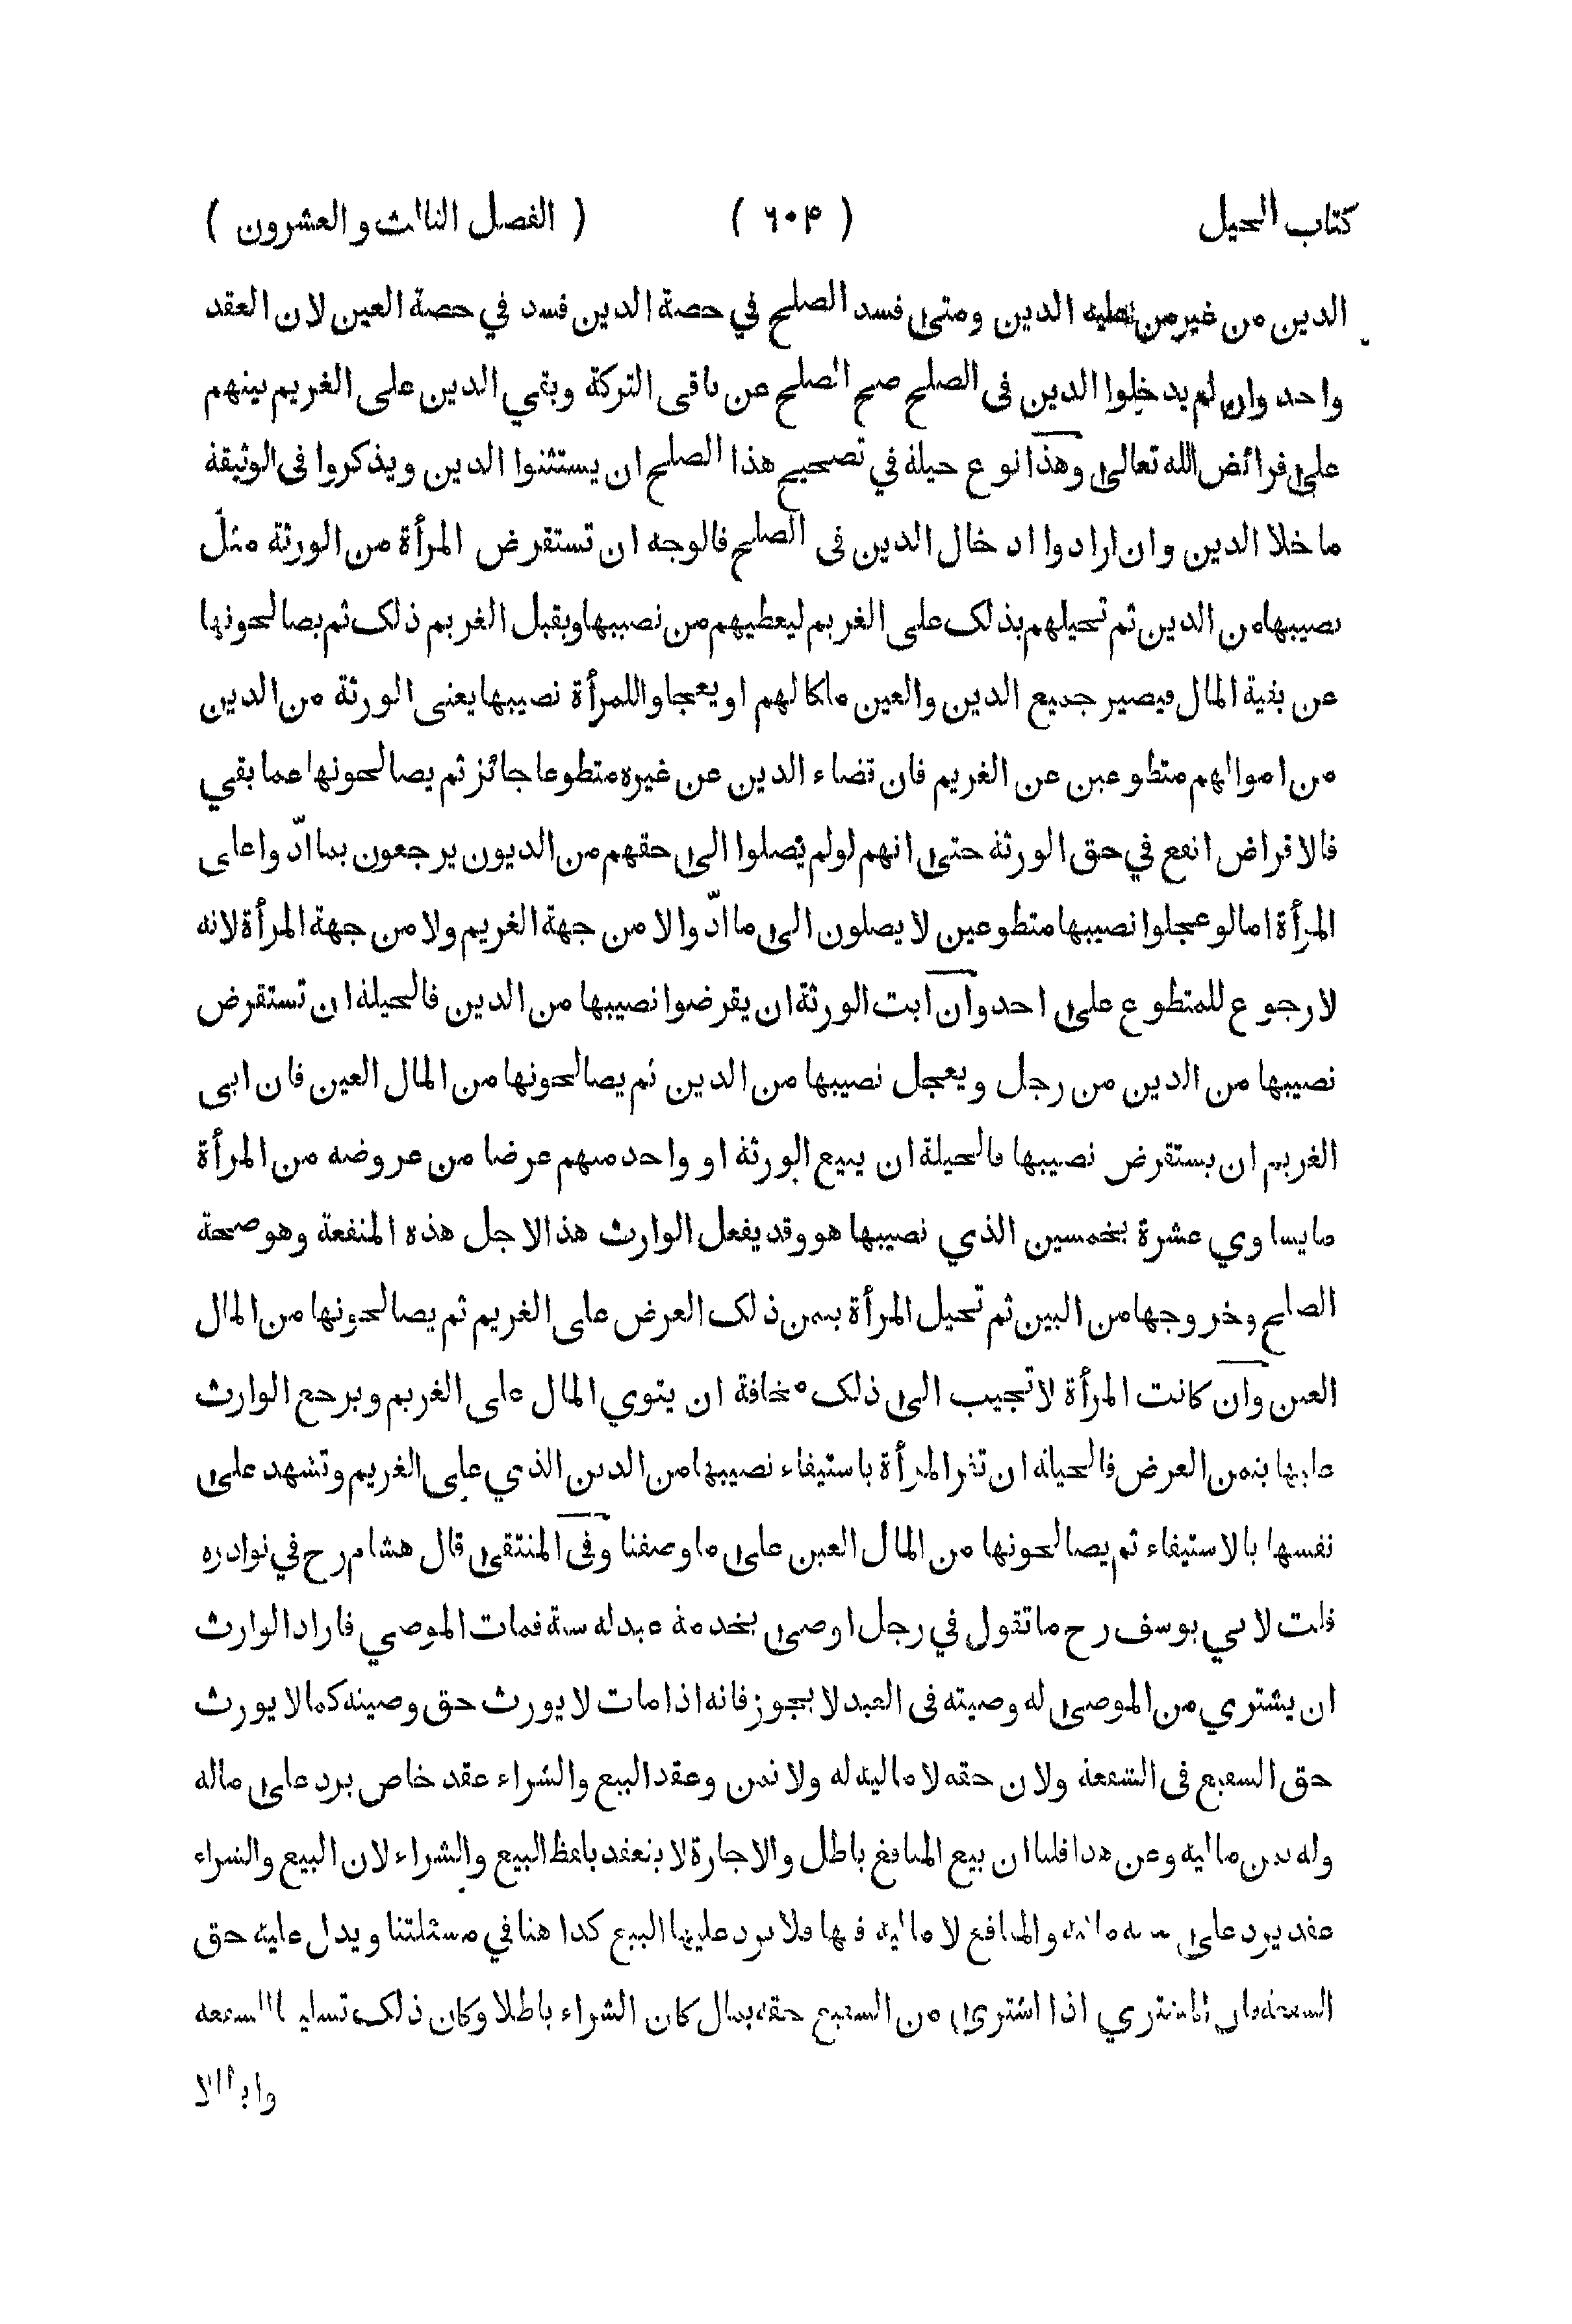 كتاب الحيل ( ٦٠٤ ) ( الفصل الثالث و العشرون )
الدين من غير من عليه الدين ومتى فسد الصلح في حصة الدين فسد في حصة العين لان العقد
واحد وان لم يدخلوا الدين فى الصلح صح الصلح عن باقى التركة وبقي الدين على الغريم بينهم
على فرائض الله تعالى وهذا نوع حيلة في تصحيح هذا الصلح ان يستثنوا الدين ويذكروا فى الوثيقة
ما خلا الدين وان ارادوا ادخال الدين فى الصلح فالوجه ان تستقرض المرأة من الورثة مثل
نصيبها من الدين ثم تحيلهم بذلك على الغريم ليعطيهم من نصيبها ويقبل الغريم ذلك ثم يصالحونها
عن بقية المال فيصير جميع الدين والعين ملكا لهم او يعجلوا للمرأة نصيبها يعنى الورثة من الدين
من اموالهم متطوعين عن الغريم فان قضاء الدين عن غيره متطوعا جائز ثم يصالحونها عما بقي
فالاقراض انفع في حق الورثة حتى انهم لو لم يصلوا الى حقهم من الديون يرجعون بما ادّوا على
المرأة اما لو عجلوا نصيبها متطوعين لا يصلون الى ما ادّوا لا من جهة الغريم ولا من جهة المرأة لانه
لا رجوع للمتطوع على احد وان ابت الورثة ان يقرضوا نصيبها من الدين فالحيلة ان تستقرض
نصيبها من الدين من رجل ويعجل نصيبها من الدين ثم يصالحونها من المال العين فان ابى
الغريم ان يستقرض نصيبها فالحيلة ان يبيع الورثة او واحد منهم عرضا من عروضه من المرأة
ما يساوي عشرة بخمسين الذي نصيبها هو وقد يفعل الوارث هذا لاجل هذه المنفعة وهو صحة
الصلح وخروجها من البين ثم تحيل المرأة بثمن ذلك العرض على الغريم ثم يصالحونها من المال
العين وان كانت المرأة لا تجيب الى ذلك مخافة ان يتوي المال على الغريم ويرجع الوارث
عليها بثمن العرض فالحيلة ان تقر المرأة باستيفاء نصيبها من الدين الذي على الغريم وتشهد على
نفسها بالاستيفاء ثم يصالحونها من المال العين على ما وصفنا وفى المنتقى قال هشام رح في نوادره
قلت لابي يوسف رح ما تقول في رجل اوصى بخدمة عبد له سنة فمات الموصي فاراد الوارث
ان يشتري من الموصى له وصيته فى العبد لا يجوز فانه اذا مات لا يورث حق وصيته كما لا يورث
حق الشفيع فى الشفعة ولان حقه لا مالية له ولا ثمن وعقد البيع والشراء عقد خاص يرد على ماله
وله ثمن مالية وعن هذا قلنا ان بيع المنافع باطل والاجارة لا ينعقد بلفظ البيع والشراء لان البيع والشراء
عقد يرد على والمنافع لا مالية فيها فلا يرد عليها البيع كذا هنا في مسئلتنا ويدل عليه حق
الشفعة فان المشتري اذا اشترى من الشفيع حقه بمال كان الشراء باطلا وكان ذلك الشفعة